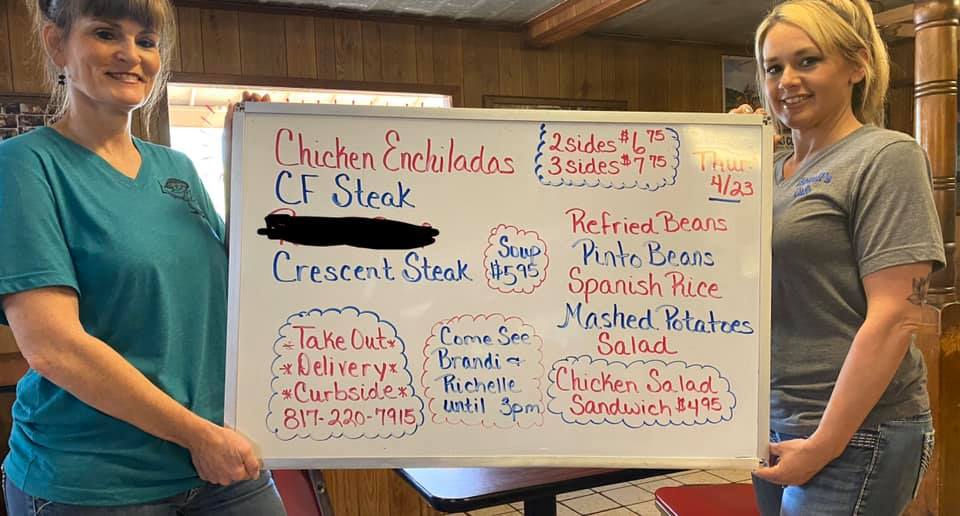 Chicken Enchiladas
CF Steak
Crescent Steak
2 sides $6.75
3 sides $7.75
Thur.
4/23
Soup
$5.95
Refried Beans
Pinto Beans
Spanish Rice
Mashed Potatoes
Salad
*Take Out*
*Delivery*
*Curbside*
817-220-7915
Come See
Brandi &
Richelle
until 3pm
Chicken Salad
Sandwich $4.95